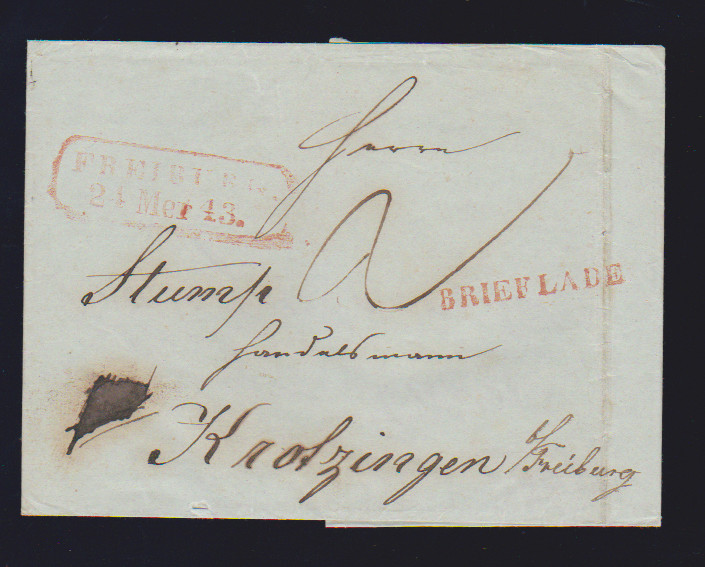 Herrn
FREIBURG.
24 Mer 43.
Stump
2
BRIEFLADE
Handelsmann
Krotzingen b/Freiburg